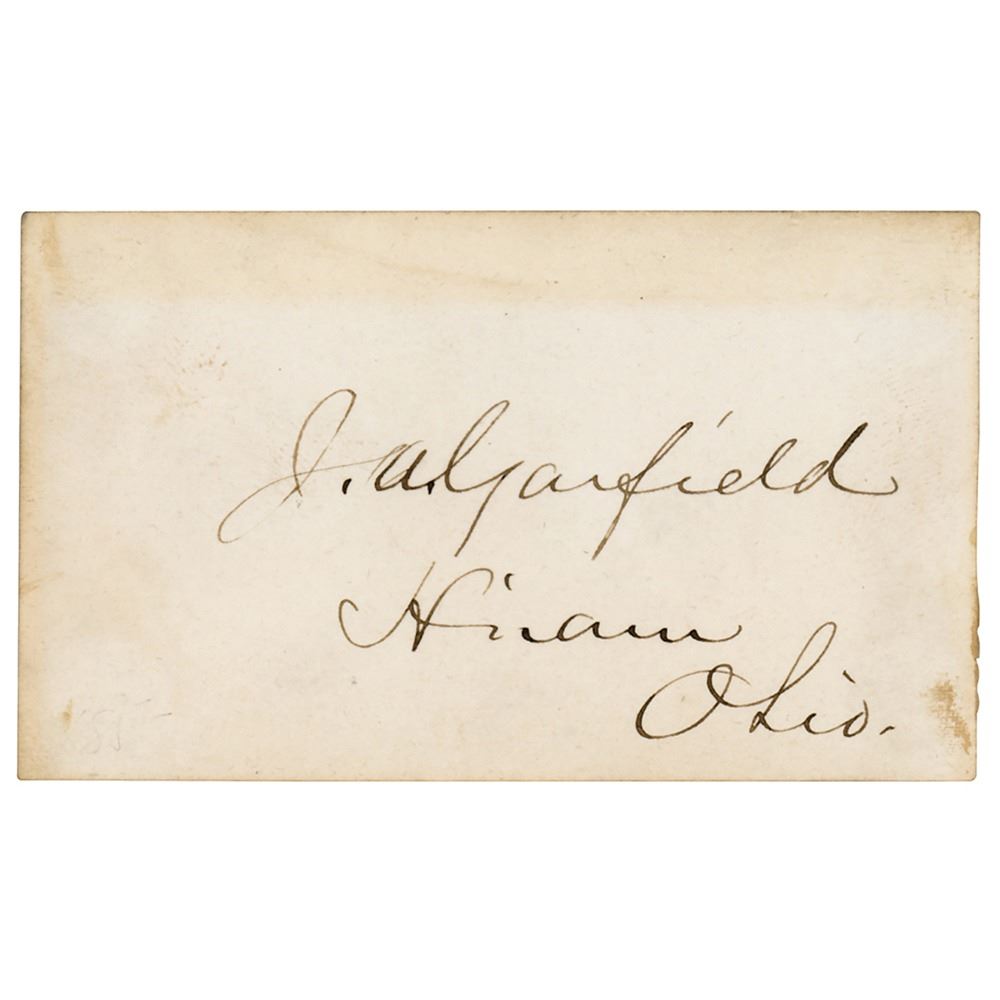 J. A. Garfield
Hiram
Ohio.